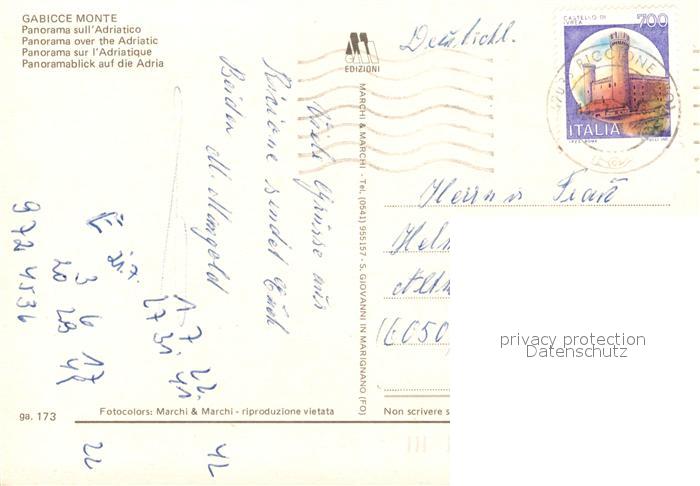 GABICCE MONTE
Panorama sull'Adriatico
Panorama over the Adriatic
Panorama sur l'Adriatique
Panoramablick auf die Adria
EDIZIONI
MARCHI & MARCHI - Tel. (0541) 955157 - S. GIOVANNI IN MARIGNANO (FO)
Deutschl.
CASTELLO DI
IVREA
700
ITALIA
RICCIONE
Viele Grüsse aus
Riccione sendet Euch
Beiden M. Mangold
Herrn u. Frau
privacy protection
Datenschutz
E 21.7.
3 6 17
20 29 47
972 4536
1 7 22
27 31 41
22
42
ga. 173
Fotocolors: Marchi & Marchi - riproduzione vietata
Non scrivere s